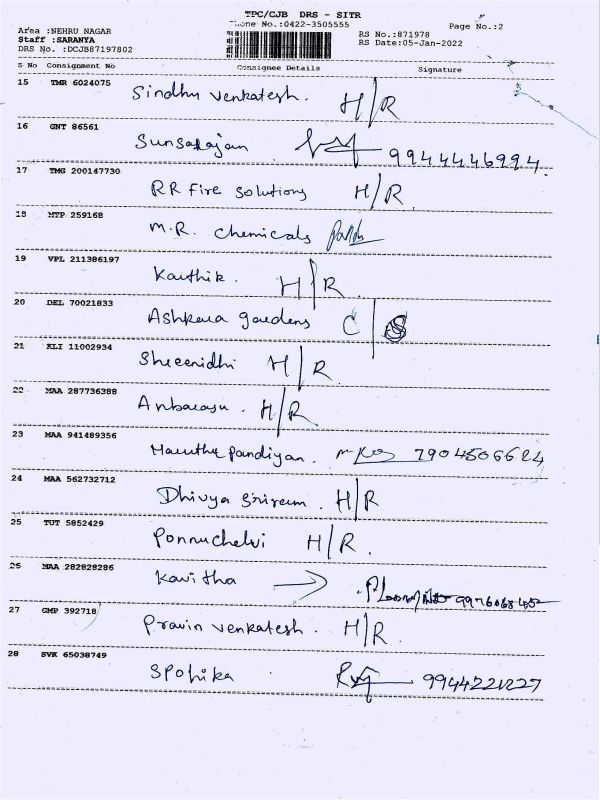 TPC/CJB DRS - SITR
Phone No.:0422-3505555
Page No.:2
Area :NEHRU NAGAR
Staff :SARANYA
DRS No. :DCJB87197802
RS No.:871978
RS Date:05-Jan-2022
S No Consignment No Consignee Details Signature
15 TMR 6024075 Sindhu Venkatesh. H/R
16 GNT 86561 Sunsarajan 9944446994
17 TMG 200147730 RR Fire Solutions H/R
18 MTP 259168 M.R. Chemicals
19 VPL 211386197 Kauthik. H/R
20 DEL 70021833 Ashkara gardens C/S
21 KLI 11002934 Shreenidhi H/R
22 MAA 287736388 Anbarasu. H/R
23 MAA 941489356 Pandiyan. 7904506624
24 MAA 562732712 Dhivya Sriram. H/R
25 TUT 5852429 Ponnuchelvi H/R.
26 MAA 282828286 Kavitha →
27 GMP 392718 Pravin Venkatesh. H/R
28 SVK 65038749 9944221227